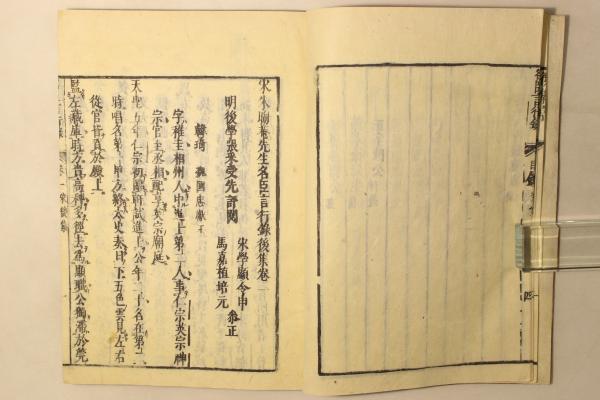 宋朱晦菴先生名臣言行錄後集卷一
明後學張采受先評閱
宋學顯令申
馬嘉植培元 參正
韓琦 魏國忠獻王
字稚圭相州人中進士第二人事仁宗英宗神
宗官至丞相配享英宗廟庭
天聖五年仁宗初臨軒試進士公年二十名在第二
時唱名第一甲方終太史奏日下五色雲見左右
從官皆賀於殿上
監左藏庫時方貴高科多徑去為顯職公獨滯於筦